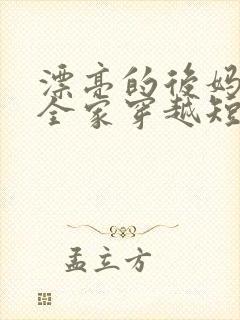 漂亮的後妈
全家穿越短
孟立方